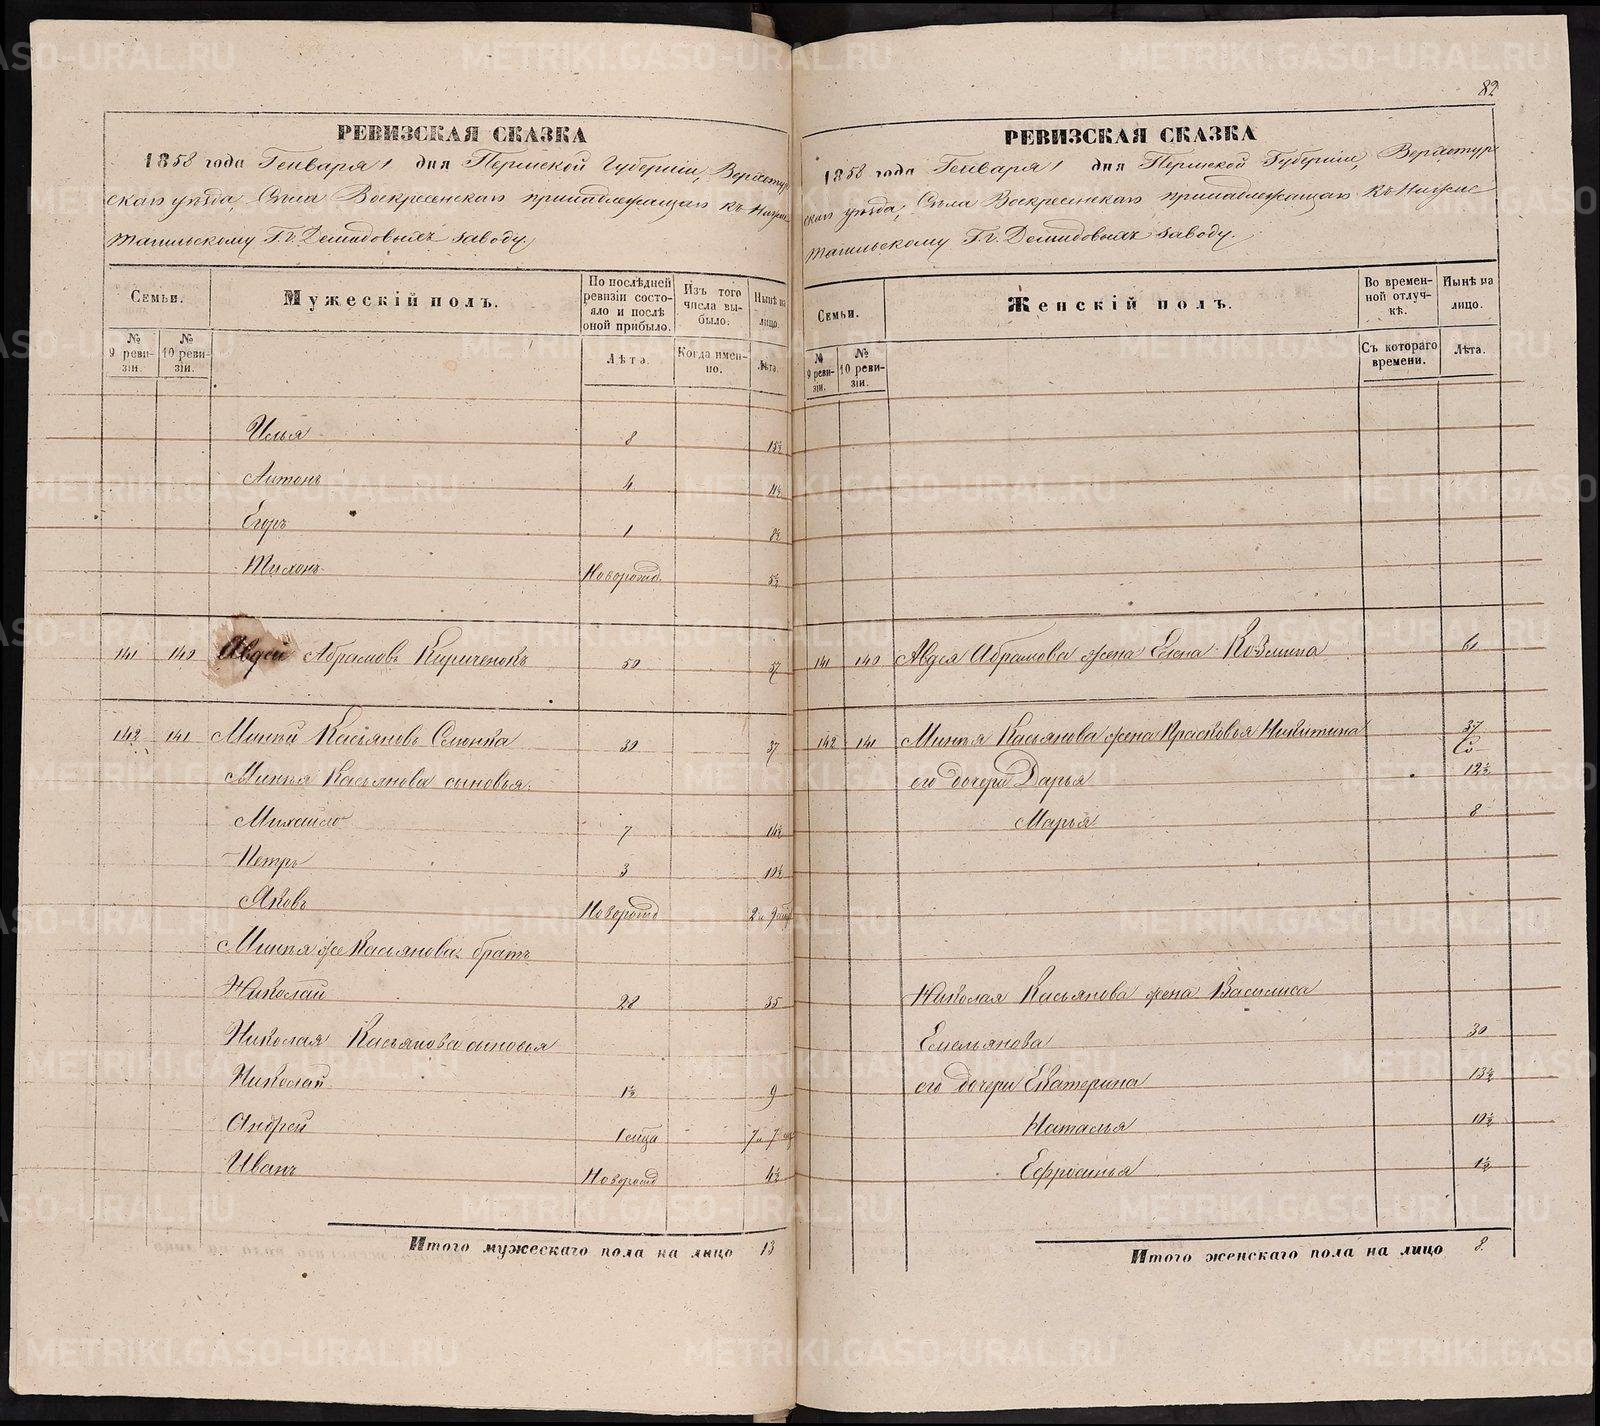 82
РЕВИЗСКАЯ СКАЗКА
1858 года Генваря 1 дня Пермской Губерніи, Верхотур
скаго уѣзда, Села Воскресенскаго принадлежащаго къ Нижне
тагильскому Г.г. Демидовыхъ заводу.
Семьи.
№ 9 ревизіи.
№ 10 ревизіи.
Мужескій полъ.
По послѣдней ревизіи состояло и послѣ оной прибыло.
Лѣта.
Изъ того числа выбыло.
Когда именно.
Нынѣ на лицо.
Лѣта.
Илья 8 15½
Антонъ 4 11½
Егоръ 1 8½
Тихонъ Новорожд. 5½
141 140 Авдей Абрамовъ Кириченокъ 50 57
142 141 Миней Касьяновъ Слюнка 30 37
Минея Касьянова сыновья.
Михаило 7 14½
Петръ 3 10½
Яковъ Новорожд 2 и 9
Минея же Касьянова братъ
Николай 28 35
Николая Касьянова сыновья
Николай 1½ 9
Андрей 1 7 и 7
Иванъ Новорожд 4½
Итого мужескаго пола на лицо 13
РЕВИЗСКАЯ СКАЗКА
1858 года Генваря 1 дня Пермской Губерніи, Верхотур
скаго уѣзда, Села Воскресенскаго принадлежащаго къ Нижне
тагильскому Г.г. Демидовыхъ заводу.
Семьи.
№ 9 ревизіи.
№ 10 ревизіи.
Женскій полъ.
Во временной отлучкѣ.
Съ котораго времени.
Нынѣ на лицо.
Лѣта.
141 140 Авдея Абрамова жена Елена Козмина 61
142 141 Минея Касьянова жена Прасковья Никитина 37
его дочери Дарья 12½
Марья 8
Николая Касьянова жена Василиса
Емельянова 30
его дочери Екатерина 13½
Наталья 10½
Ефросинья 1½
Итого женскаго пола на лицо 8.
METRIKI.GASO-URAL.RU